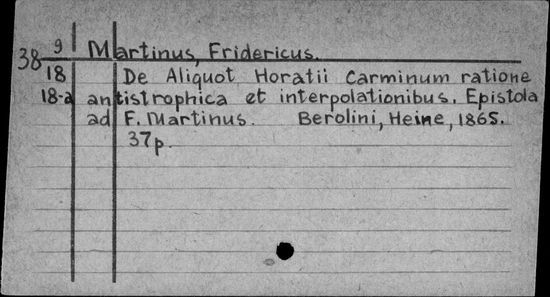 38 9 Martinus, Fridericus.
18 De Aliquot Horatii Carminum ratione
18-a antistrophica et interpolationibus. Epistola
ad F. Martinus. Berolini, Heine, 1865.
37p.